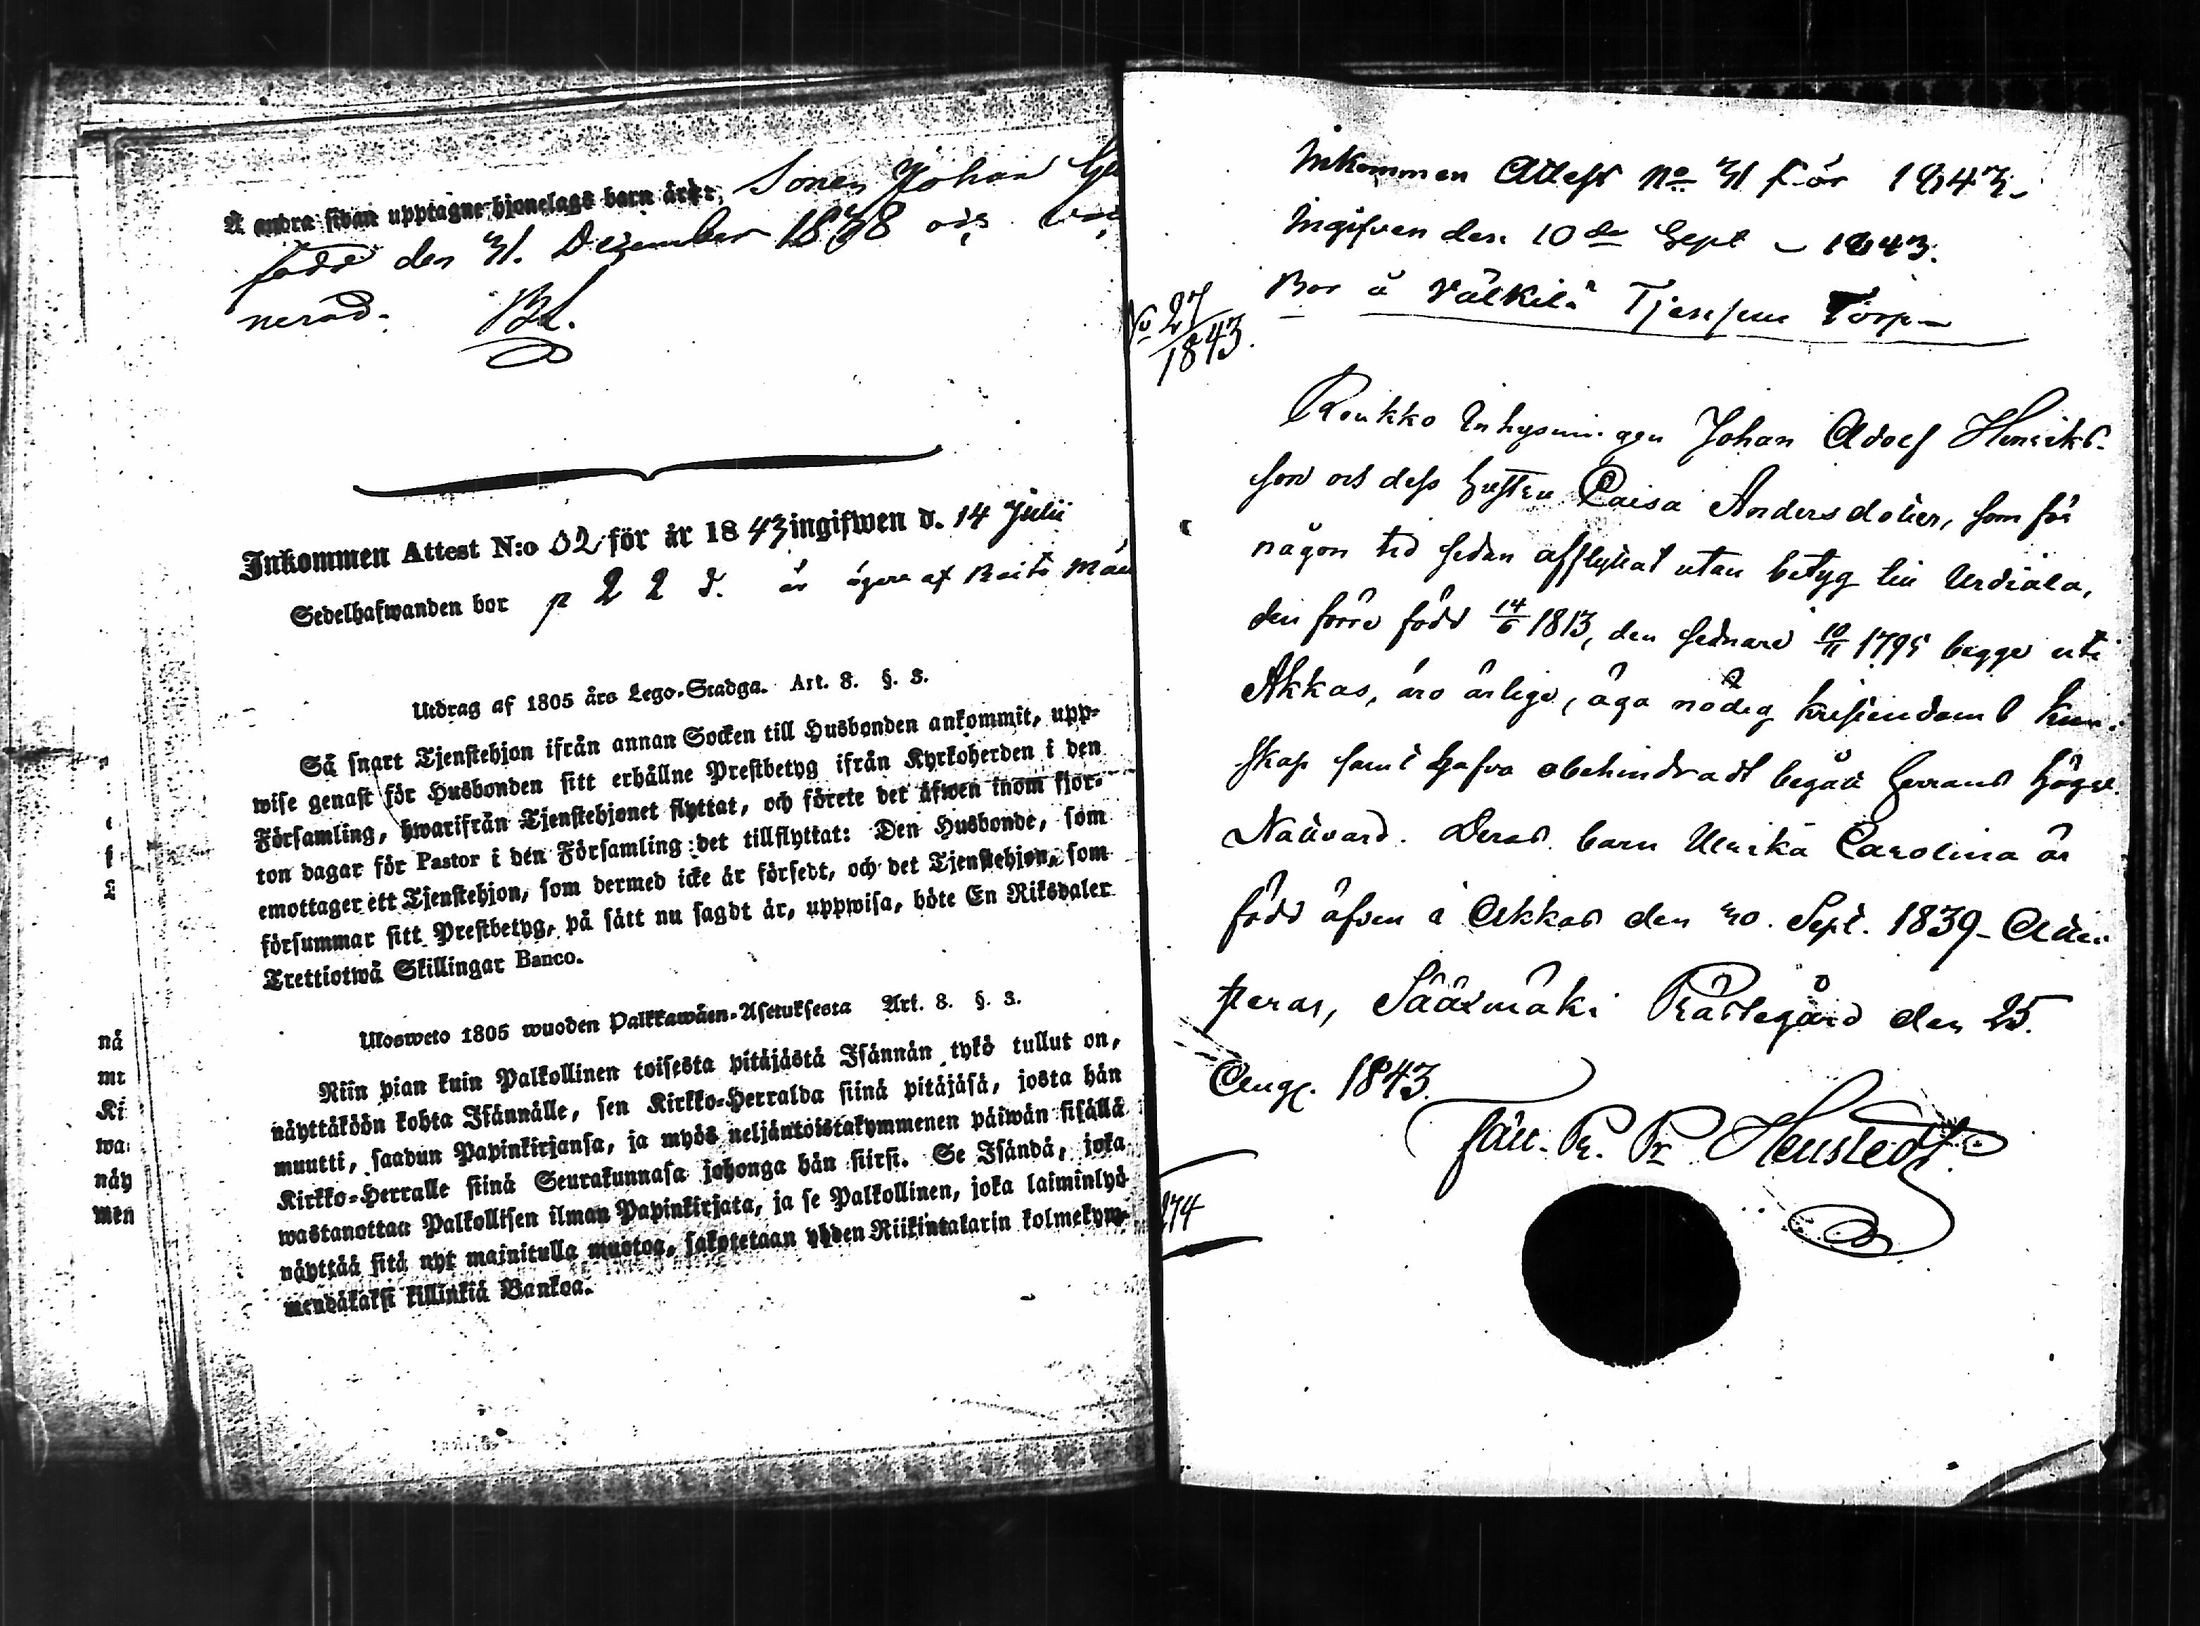 Å andra sidan upptagne hjonelags barn äro: Sonen Johan
född den 31. December 1838 oc
nerad.
Inkommen Attest N:o 52 för år 1843 ingifwen d. 14 Julii
Sedelhafwanden bor p 22 d. är ägare af
Utdrag af 1805 års Lego-Stadga. Art. 8. §. 3.
Så snart Tjenstehjon ifrån annan Socken till Husbonden ankommit, upp-
wise genast för Husbonden sitt erhållne Prestbetyg ifrån Kyrkoherden i den
Församling, hwarifrån Tjenstehjonet flyttat, och förete det äfwen inom fjor-
ton dagar för Pastor i den Församling det tillflyttat: Den Husbonde, som
emottager ett Tjenstehjon, som dermed icke är försedt, och det Tjenstehjon, som
försummar sitt Prestbetyg, på sätt nu sagdt är, uppwisa, böte En Riksdaler
Trettiotwå Skillingar Banco.
Ulosweto 1805 wuoden Palkkawäen-Asetuksesta Art. 8. §. 3.
Niin pian kuin Palkollinen toisesta pitäjästä Isännän tykö tullut on,
näyttäköön kohta Isännälle, sen Kirkko-Herralda siinä pitäjäsä, josta hän
muutti, saadun Papinkirjansa, ja myös neljäntoistakymmenen päiwän sisällä
Kirkko-Herralle siinä Seurakunnasa johonga hän siirsi. Se Isändä, joka
wastanottaa Palkollisen ilman Papinkirjata, ja se Palkollinen, joka laiminlyö
näyttää sitä nyt mainitulla muotoa, sakotetaan yhden Riikintalarin kolmekym-
mendäkaksi killinkiä Bankoa.
nä
mt
Ki
wa
näy
men
Inkommen Attest No 31 för 1843
Ingifven den 10de Sept 1843.
Bor å Välkilä Torp
No 27
1843.
Roukko Inhysningen Johan Adolf Henriks-
son och dess hustru Caisa Andersdotter, som för
någon tid sedan afflyttat utan betyg till Urdiala,
den förre född 14/6 1813, den sednare 10/11 1795 begge uti
Akkas, äro ärlige, äga nödig kristendoms kun-
skap samt hafva obehindradt begått Herrans högv.
Nattvard. Deras barn Ulrika Carolina är
född äfven i Akkas den 30. Sept. 1839. Atte-
steras, Sääxmäki Prästegård den 25.
Aug. 1843.
274